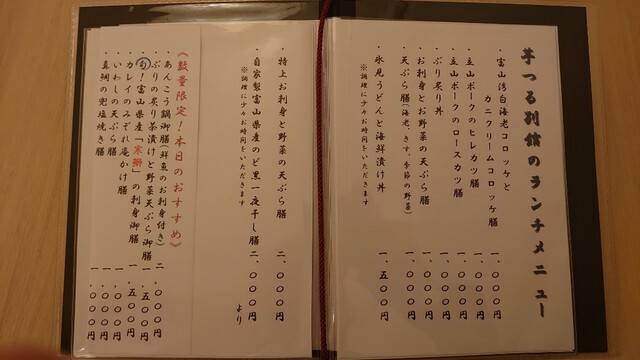 芋つる別館のランチメニュー
・富山湾白海老コロッケと
カニクリームコロッケ膳 一、〇〇〇円
・立山ポークのヒレカツ膳 一、〇〇〇円
・立山ポークのロースカツ膳 一、〇〇〇円
・ぶり炙り丼 一、〇〇〇円
・お刺身とお野菜の天ぷら膳 一、〇〇〇円
・天ぷら膳(海老、きす、季節の野菜) 一、〇〇〇円
・氷見うどんと海鮮漬け丼 一、五〇〇円
※調理に少々お時間をいただきます
・特上お刺身と野菜の天ぷら膳 二、〇〇〇円
・自家製富山県産のど黒一夜干し膳 二、〇〇〇円
より
※調理に少々お時間をいただきます
《数量限定!本日のおすすめ》
・あんこう鍋御膳(鮮魚のお刺身付き) 二、〇〇〇円
・ぶりの炙り茶漬けと野菜天ぷら御膳 一、五〇〇円
・旬!富山県産「寒鰤」の刺身御膳 一、五〇〇円
・カレイのみぞれ庵かけ膳 一、〇〇〇円
・いわしの天ぷら膳 一、〇〇〇円
・真鯛の兜塩焼き膳 一、〇〇〇円